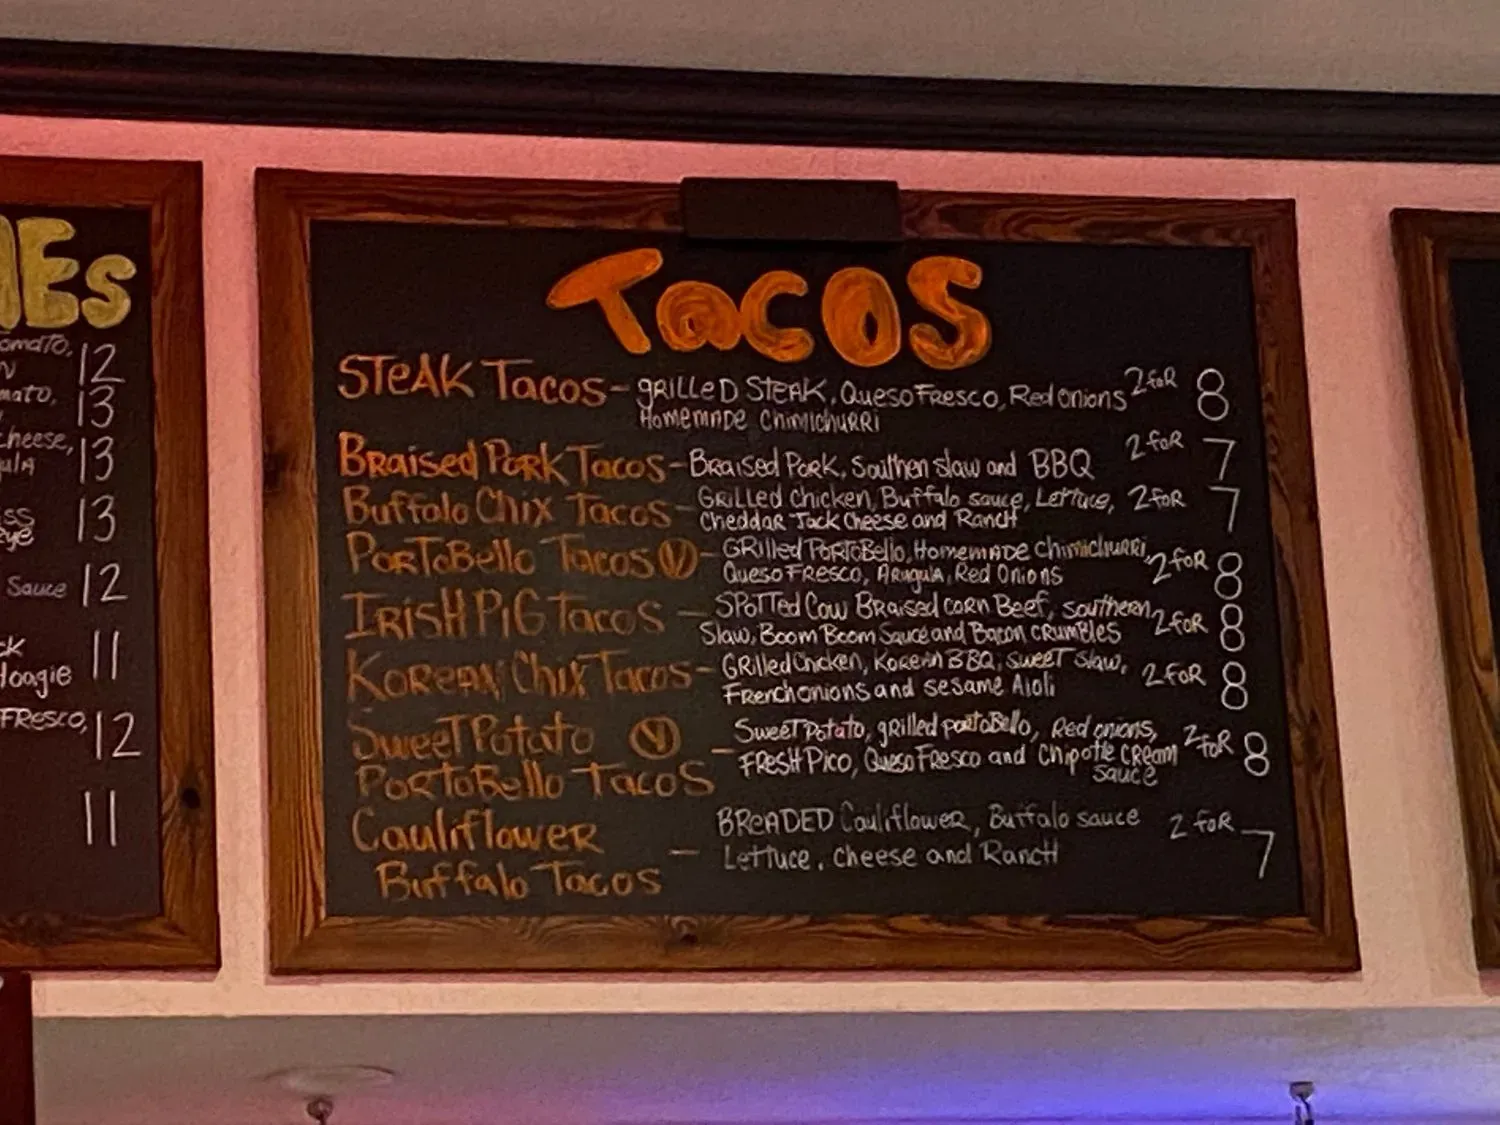 MEs
omato, 12
N
mato, 13
cheese, 13
ula
iss 13
eye
Sauce 12
ck 11
Hoagie
Fresco, 12
11
Tacos
Steak Tacos - Grilled Steak, Queso Fresco, Red Onions 2 for 8
Homemade Chimichurri
Braised Pork Tacos - Braised Pork, Southen Slaw and BBQ 2 for 7
Buffalo Chix Tacos - Grilled Chicken, Buffalo sauce, Lettuce, 2 for 7
Cheddar Jack Cheese and Ranch
Portobello Tacos V - Grilled Portobello, Homemade Chimichurri, 2 for 8
Queso Fresco, Arugula, Red Onions
Irish Pig Tacos - Spotted Cow Braised Corn Beef, Southern 2 for 8
Slaw, Boom Boom Sauce and Bacon Crumbles
Korean Chix Tacos - Grilled Chicken, Korean BBQ, Sweet Slaw, 2 for 8
French onions and Sesame Aioli
Sweet Potato V - Sweet Potato, grilled portobello, Red onions, 2 for 8
Portobello Tacos Fresh Pico, Queso Fresco and Chipotle cream
sauce
Cauliflower - Breaded Cauliflower, Buffalo sauce 2 for 7
Buffalo Tacos Lettuce, cheese and Ranch